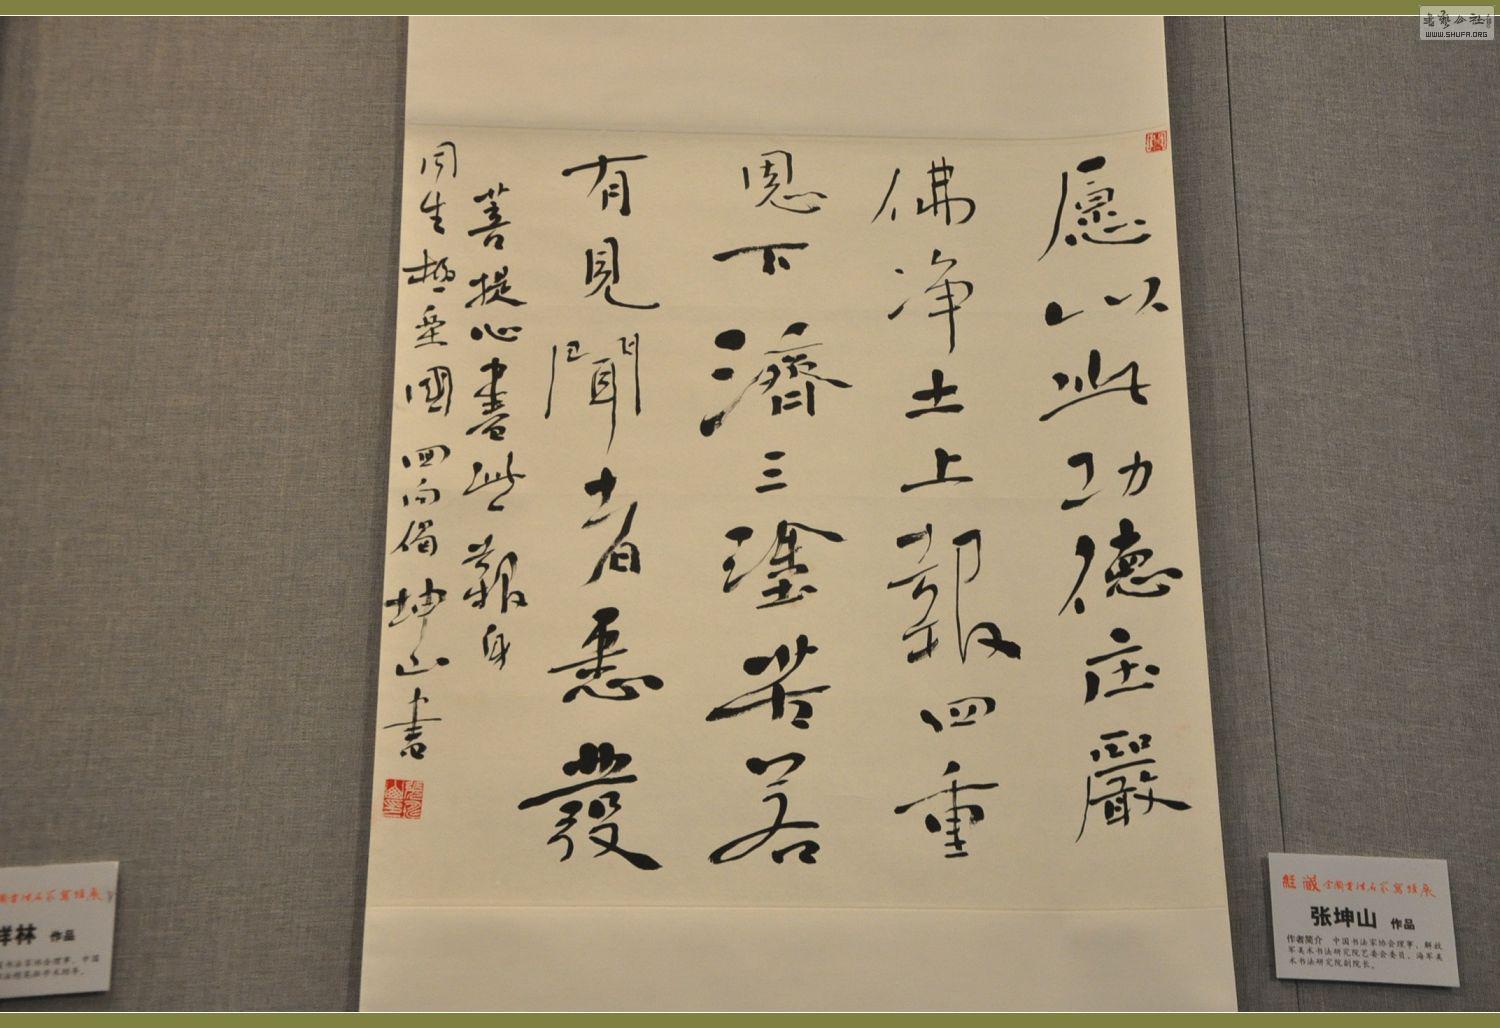 愿以此功德庄嚴
佛净土上報四重
恩下濟三塗苦若
有見聞者悉發
菩提心盡此一報身
同生極樂國 回向偈 坤山書
經藏 全國書法名家寫經展
张坤山 作品
作者简介 中国书法家协会理事，解放
军美术书法研究院艺委会委员，海军美
术书法研究院副院长。
祥林 作品
书法家协会理事，中国
WWW.SHUFA.ORG